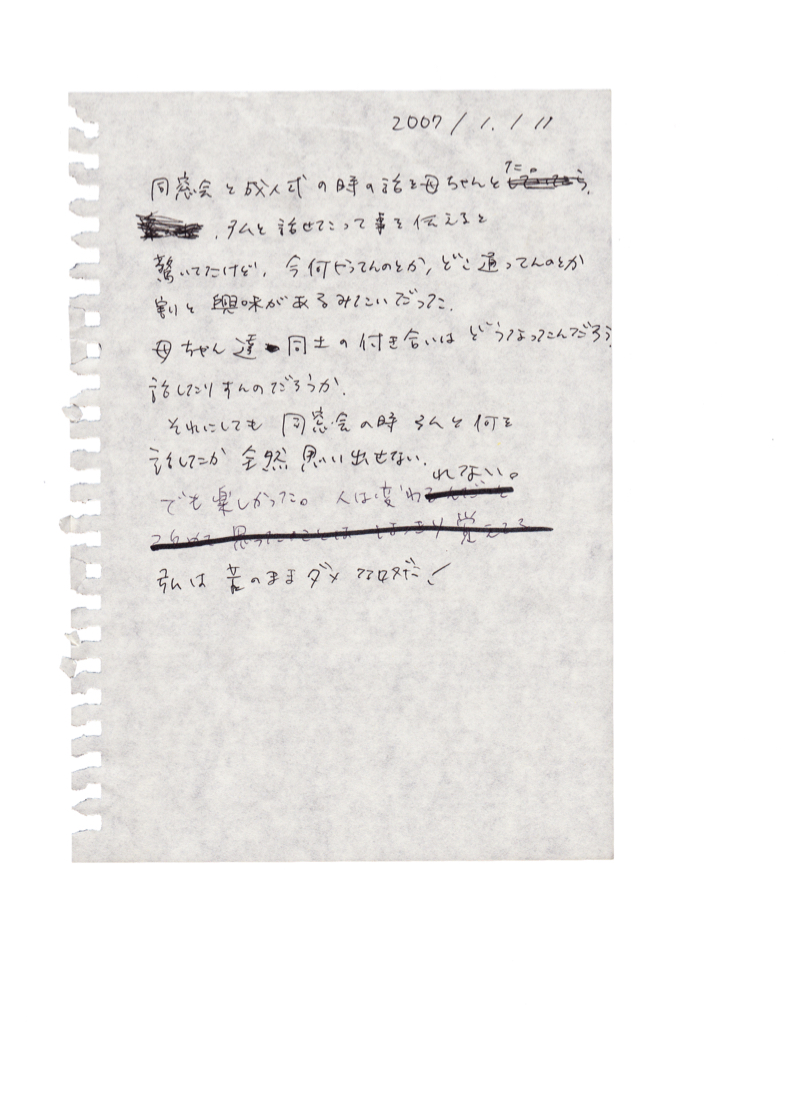 2007/1./11
同窓会と成人式の時の話を母ちゃんと た。
と話せたって事を伝えると
驚いてたけど、今何やってんのとか、どこ通ってんのとか
割と興味があるみたいだった。
母ちゃん達同士の付き合いはどうなってんだろう
話したりすんのだろうか.
それにしても同窓会の時 と何を
話したか全然思い出せない.
でも楽しかった。人は変われてない。
私は昔のままダメ だ!